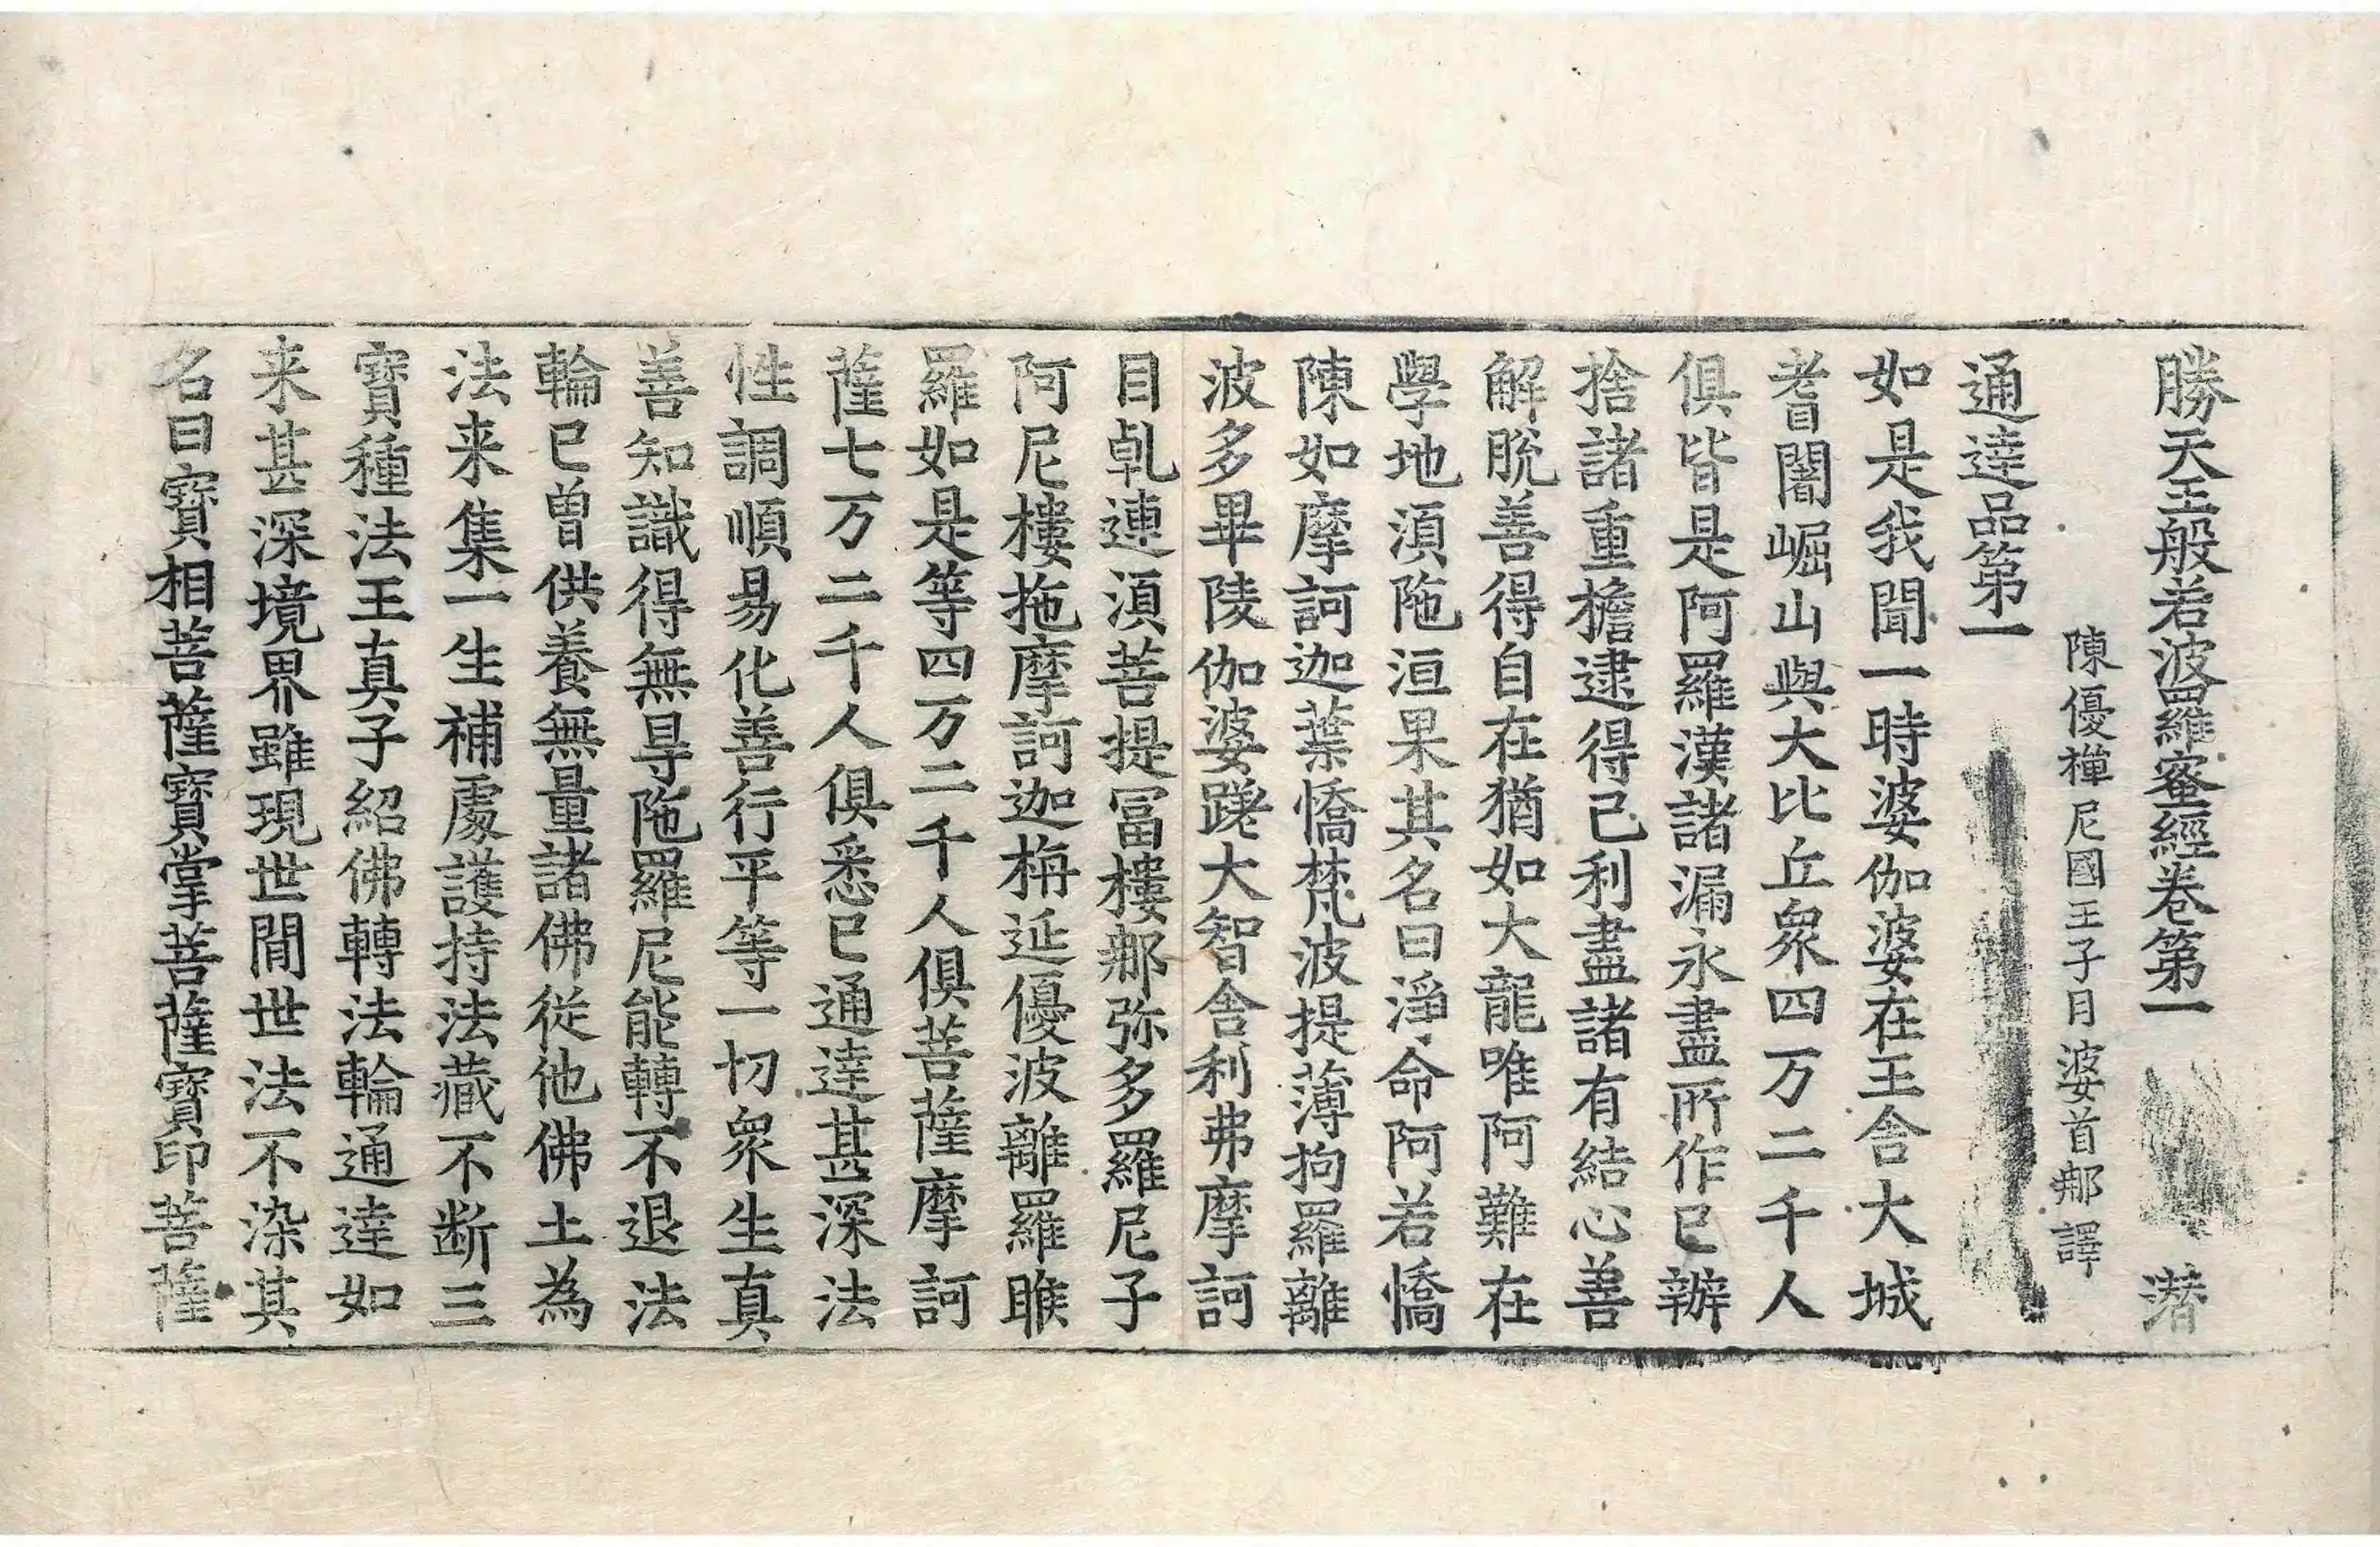 勝天王般若波羅蜜經卷第一 潜
陳優禪尼國王子月婆首那譯
通達品第一
如是我聞一時婆伽婆在王舍大城
耆闍崛山與大比丘衆四万二千人
俱皆是阿羅漢諸漏永盡所作已辦
捨諸重擔逮得己利盡諸有結心善
解脫善得自在猶如大龍唯阿難在
學地湏陁洹果其名曰淨命阿若憍
陳如摩訶迦葉憍梵波提薄拘羅離
波多畢陵伽婆蹉大智舍利弗摩訶
目乹連湏菩提冨樓那弥多羅尼子
阿尼樓拖摩訶迦栴延優波離羅睺
羅如是等四万二千人俱菩薩摩訶
薩七万二千人俱悉已通達甚深法
性調順易化善行平等一切衆生真
善知識得無㝵陁羅尼能轉不退法
輪已曾供養無量諸佛從他佛土為
法来集一生補處護持法藏不断三
寶種法王真子紹佛轉法輪通達如
来甚深境界雖現世間世法不染其
名曰寶相菩薩寶掌菩薩寶印菩薩